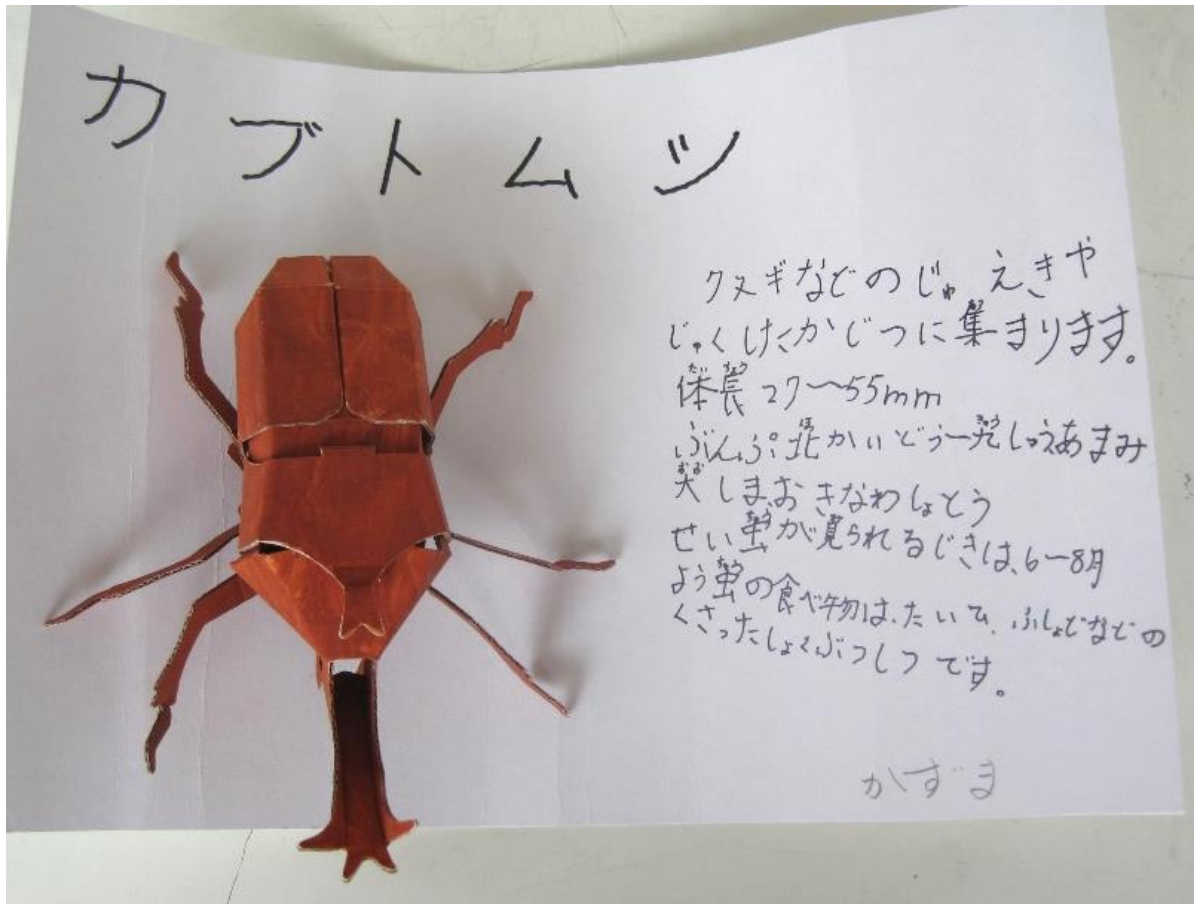 カブトムシ
クヌギなどのじゅえきや
じゅくしたかじつに集まります。
体長27〜55mm
ぶんぷ北かいどう〜九しゅうあまみ
大しま、おきなわしょとう
せい虫が見られるじきは、6〜8月
よう虫の食べ物は、たいひ、ふしょくなどの
くさったしょくぶつしつです。
かずま